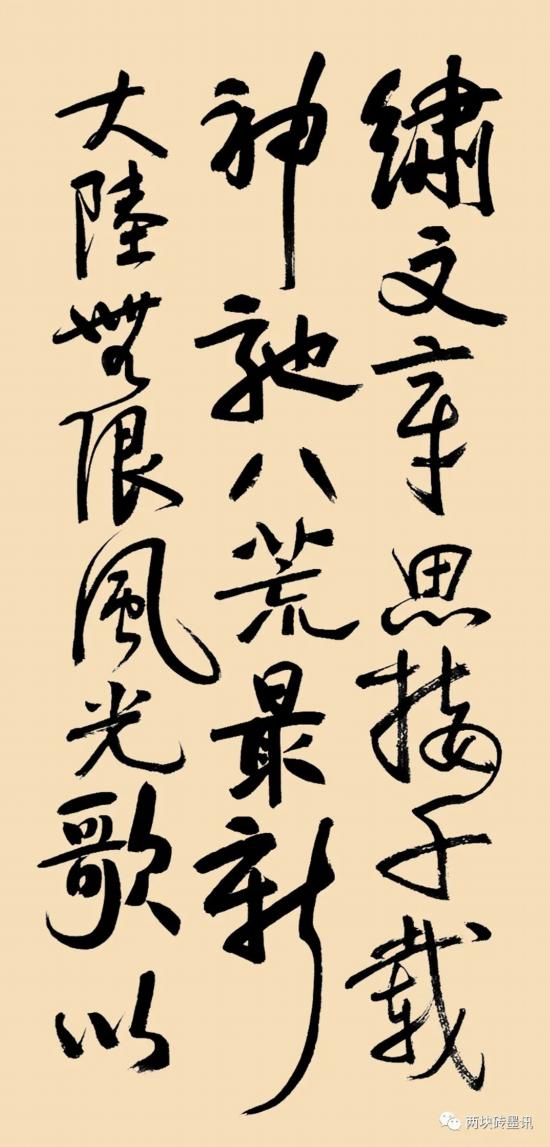 繡文章思接千載
神馳八荒最新
大陸無限風光歌以
两块砖墨讯